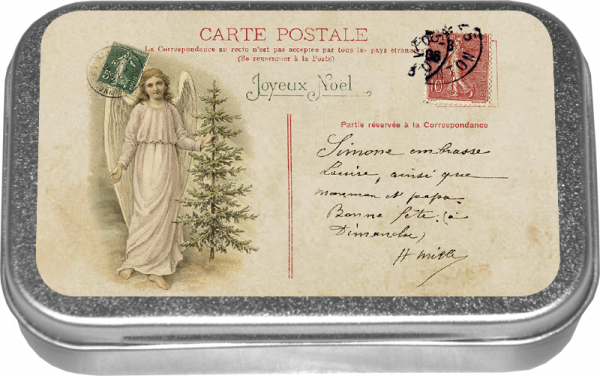 CARTE POSTALE
La Correspondance au recto n'est pas acceptée par tous les pays étrangers
(Se renseigner à la Poste)
Joyeux Noel
Partie réservée à la Correspondance
Simone embrasse
Louise, ainsi que
maman et papa.
Bonne fête (à
Dimanche)
5
10